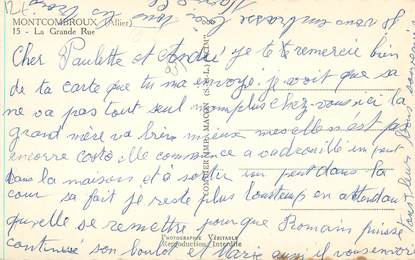 MONTCOMBROUX (Allier)
15 - La Grande Rue
Cher Paulette et André je te remercie bien
de ta carte que tu ma envoyé je voit que sa
ne va pas tout seul nomplus chez vous ici la
grand mère va bien mieux mes elle n'est pas
encorre costo elle commence a vadrouillé un peut
dans la maisons et à sortir un peut dans la
cour sa fait je reste plus lontemps en attendan
qu'elle se remettre pour que Romain puisse
continué son boulot et Marie aussi il vous
PHOTOGRAPHIE VÉRITABLE
Reproduction Interdite
COMBIER IMP. MACON